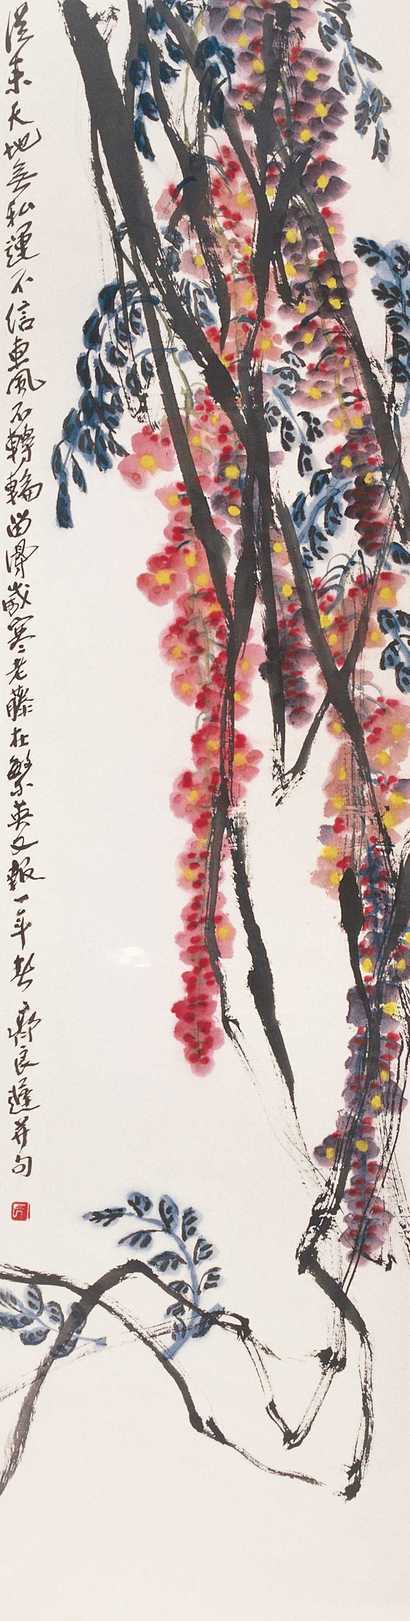 從来天地無私運不信東風不轉輪留得歲寒老藤在繁英又報一年春 鄭良進并句